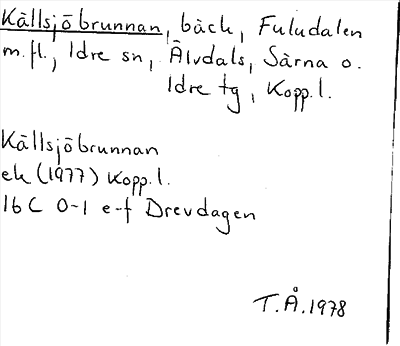 Källsjöbrunnan, bäck, Fuludalen
m.fl., Idre sn, Älvdals, Särna o.
Idre tg, Kopp.l.
Källsjöbrunnan
ek (1977) Kopp.l.
16C 0-1 e-f Drevdagen
T.Å.1978